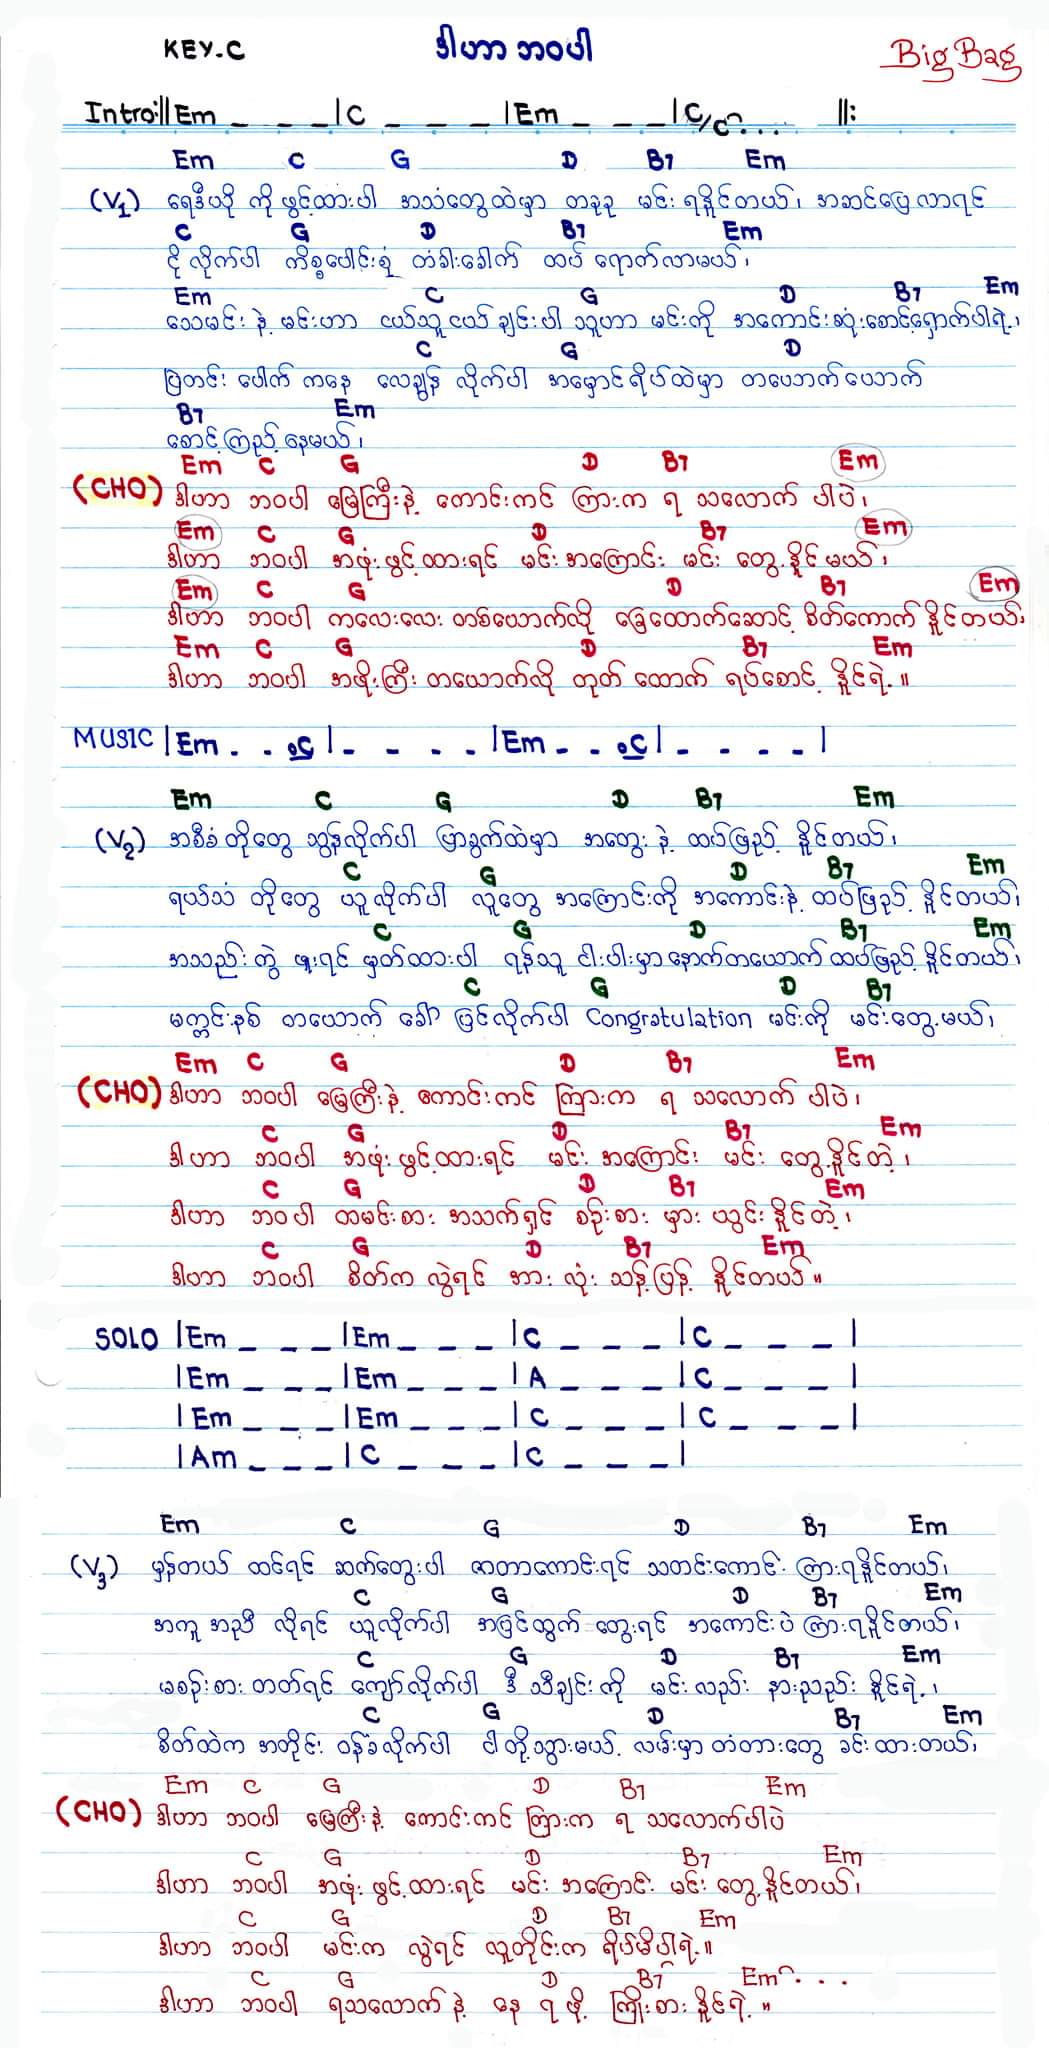 KEY-C ဒါဟာ ဘဝပါ Big Bag
Intro:|| Em _ _ _ | C _ _ _ | Em _ _ _ | C/C ... ||:
Em C G D B7 Em
(V1) ရေဒီယို ကို ဖွင့်ထားပါ အသံတွေထဲမှာ တခုခု မင်း ရနိုင်တယ်၊ အဆင်ပြေလာရင်
C G D B7 Em
ငိုလိုက်ပါ ကိစ္စပေါင်းစုံ တံခါးခေါက် ထပ် ရောက်လာမယ်၊
Em C G D B7 Em
သေမင်း နဲ့ မင်းဟာ ငယ်သူငယ်ချင်းပါ သူဟာ မင်းကို အကောင်းဆုံးစောင့်ရှောက်ပါရဲ့၊
C G D
ပြတင်း ပေါက် ကနေ လေချွန် လိုက်ပါ အမှောင်ရိပ်ထဲမှာ တယောက်ယောက်
B7 Em
စောင့်ကြည့်နေမယ်၊
Em C G D B7 Em
(CHO) ဒါဟာ ဘဝပါ မြေကြီးနဲ့ ကောင်းကင် ကြားက ရ သလောက် ပါပဲ၊
Em C G D B7 Em
ဒါဟာ ဘဝပါ အဖုံးဖွင့်ထားရင် မင်းအကြောင်း မင်း တွေ့နိုင်မယ်၊
Em C G D B7 Em
ဒါဟာ ဘဝပါ ကလေးလေး တစ်ယောက်လို ခြေထောက်ဆောင့် စိတ်ကောက်နိုင်တယ်၊
Em C G D B7 Em
ဒါဟာ ဘဝပါ အဖိုးကြီး တယောက်လို တုတ် ထောက် ရပ်စောင့် နိုင်ရဲ့။
MUSIC | Em . . .C | - - - - | Em - . .C | - - - - |
Em C G D B7 Em
(V2) အစီခံတိုတွေ သွန်လိုက်ပါ ပြာခွက်ထဲမှာ အတွေး နဲ့ ထပ်ဖြည့် နိုင်တယ်၊
C G D B7 Em
ရယ်သံ တိုတွေ ယူလိုက်ပါ လူတွေ အကြောင်းကို အကောင်းနဲ့ ထပ်ဖြည့် နိုင်တယ်၊
C G D B7 Em
အသည်းကွဲ ဖူးရင် မှတ်ထားပါ ရန်သူ ငါးပါးမှာနောက်တယောက် ထပ်ဖြည့်နိုင်တယ်၊
C G D B7
မက္ကင်းနစ် တယောက် ခေါ် ပြင်လိုက်ပါ Congratulation မင်းကို မင်းတွေ့မယ်၊
Em C G D B7 Em
(CHO) ဒါဟာ ဘဝပါ မြေကြီးနဲ့ ကောင်းကင် ကြားက ရ သလောက် ပါပဲ၊
C G D B7 Em
ဒါဟာ ဘဝပါ အဖုံးဖွင့်ထားရင် မင်း အကြောင်း မင်း တွေ့နိုင်တဲ့၊
C G D B7 Em
ဒါဟာ ဘဝပါ ထမင်းစား အသက်ရှင် စဉ်းစား မှား ယွင်းနိုင်တဲ့၊
C G D B7 Em
ဒါဟာ ဘဝပါ စိတ်က လွဲရင် အား လုံး သန့်ပြန့် နိုင်တယ်။
SOLO | Em _ _ _ | Em _ _ _ | C _ _ _ | C _ _ _ |
| Em _ _ _ | Em _ _ _ | A _ _ _ | C _ _ _ |
| Em _ _ _ | Em _ _ _ | C _ _ _ | C _ _ _ |
| Am _ _ _ | C _ _ _ | C _ _ _ |
Em C G D B7 Em
(V3) မှန်တယ် ထင်ရင် ဆက်တွေးပါ ဇာတာကောင်းရင် သတင်းကောင်း ကြားရနိုင်တယ်၊
C G D B7 Em
အကူ အညီ လိုရင် ယူလိုက်ပါ အပြင်ထွက် တွေးရင် အကောင်းပဲ ကြားရနိုင်တယ်၊
C G D B7 Em
မစဉ်းစား တတ်ရင် ကျော်လိုက်ပါ ဒီ သီချင်းကို မင်းလည်း နားညည်း နိုင်ရဲ့၊
C G D B7 Em
စိတ်ထဲက အတိုင်း ဝန်ခံလိုက်ပါ ငါတို့သွားမယ့် လမ်းမှာ တံတားတွေ ခင်းထားတယ်၊
Em C G D B7 Em
(CHO) ဒါဟာ ဘဝပါ မြေကြီးနဲ့ ကောင်းကင် ကြားက ရ သလောက်ပါပဲ
C G D B7 Em
ဒါဟာ ဘဝပါ အဖုံးဖွင့်ထားရင် မင်း အကြောင်း မင်း တွေ့နိုင်တယ်၊
C G D B7 Em
ဒါဟာ ဘဝပါ မင်းက လွဲရင် လူတိုင်းက ရိပ်မိပါရဲ့။
C G D B7 Em ...
ဒါဟာ ဘဝပါ ရသလောက် နဲ့ နေ ရဖို့ ကြိုးစား နိုင်ရဲ့။